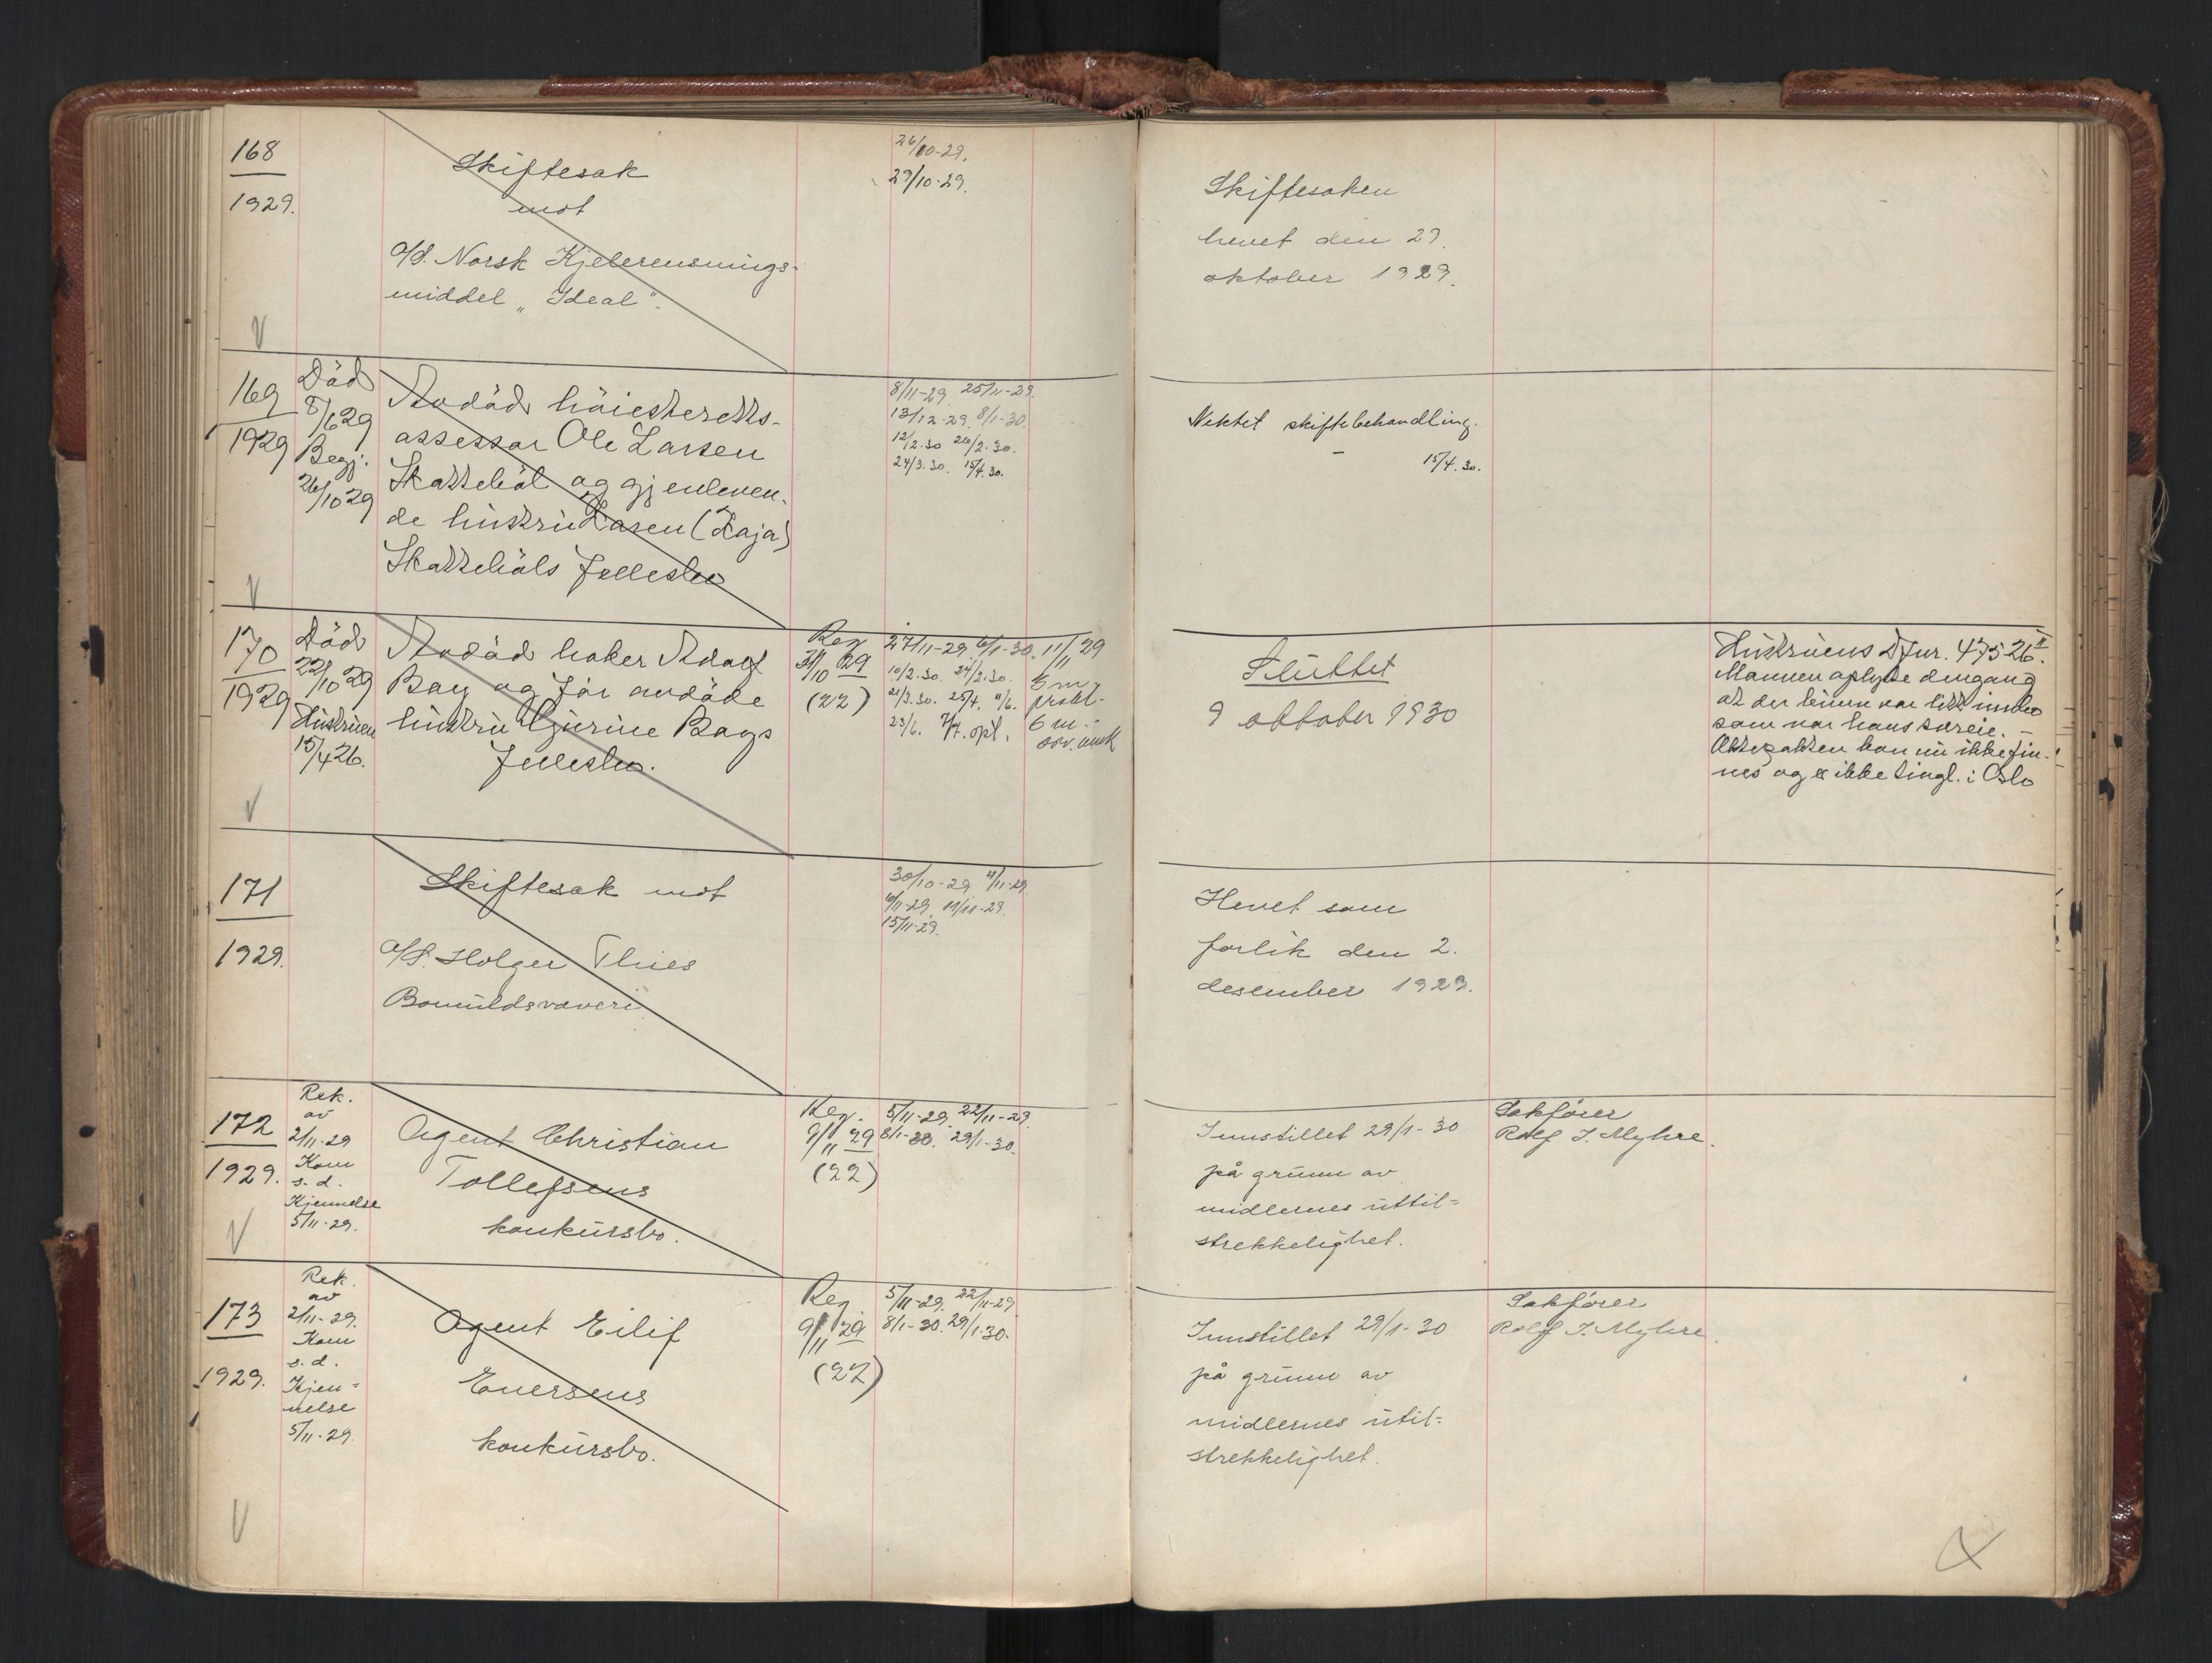 168
1929.
Skiftesak
mot
A/S. Norsk Kjelerensnings-
middel „Ideal".
26/10-29.
29/10-29.
Skiftesaken
hevet den 29.
oktober 1929.
169
1929
Död
8/6 29
Begj.
26/10 29
Avdöd höiesteretts-
assessor Ole Larsen
Skattebøl og gjenleven-
de hustru (Kaja)
Skattebøls fellesbo
8/11-29. 25/11-29.
13/12-29. 8/1-30.
12/2.30 26/2.30.
24/3.30. 15/4.30.
Nektet skiftebehandling.
15/4.30.
170
1929
Död
22/10 29
Hustruen
15/4 26.
Avdöd baker Adolf
Bay og för avdöde
hustru Gurine Bays
fellesbo.
Reg
31/10 29
(22)
27/11-29. 6/1-30.
10/2.30. 24/2.30.
21/3.30. 25/4. 11/6.
23/6. 7/7. opl.
11/11 29
6 m.
prokl.
6 m.
Sluttet
9 oktober 1930
Hustruens D jnr. 475 26 II.
Mannen oplyste dengang
at der kunn var litt innbo
som var hans særeie. -
Ektepakten kan nu ikke fin-
nes og er ikke tingl. i Oslo
171
1929.
Skiftesak mot
A/S. Holger Thies
Bomuldsvæveri
30/10-29 4/11-29.
6/11-29. 11/11-29.
15/11-29.
Hevet som
forlik den 2.
desember 1929.
172
1929.
Rek.
av
2/11-29
Kom
s. d.
Kjennelse
5/11-29.
Agent Christian
Tollefsens
konkursbo.
Reg.
9/11 29
(22)
5/11-29. 22/11-29.
8/1-30. 29/1-30.
Innstillet 29/1-30
på grunn av
midlernes uttil-
strekkelighet.
Sakfører
Rolf J. Myhre.
173
1929.
Rek.
av
2/11-29.
Kom
s. d.
Kjen-
nelse
5/11-29.
Agent Eilif
Evensens
konkursbo.
Reg.
9/11 29
(22)
5/11-29. 22/11-29
8/1-30. 29/1-30.
Innstillet 29/1-30
på grunn av
midlernes util-
strekkelighet.
Sakfører
Rolf J. Myhre.